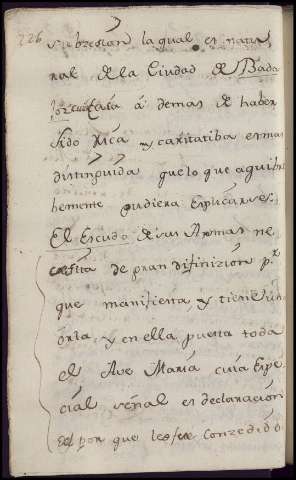 226
subresian la qual es natu-
ral de la Ciudad de Bada
joz cuia Casa á demas de haber
sido Rica y caritatiba es mas
distinguida que lo que aqui bre
bemente pudiera esplicarse:
El Escudo de sus Armas ne
cesita de gran difinizion pr.
que manifiesta, y tiene un
orla, y en ella puesta toda
el Ave Maria cuia Espe
cial señal es declaracion
del por que les fue Conzedido